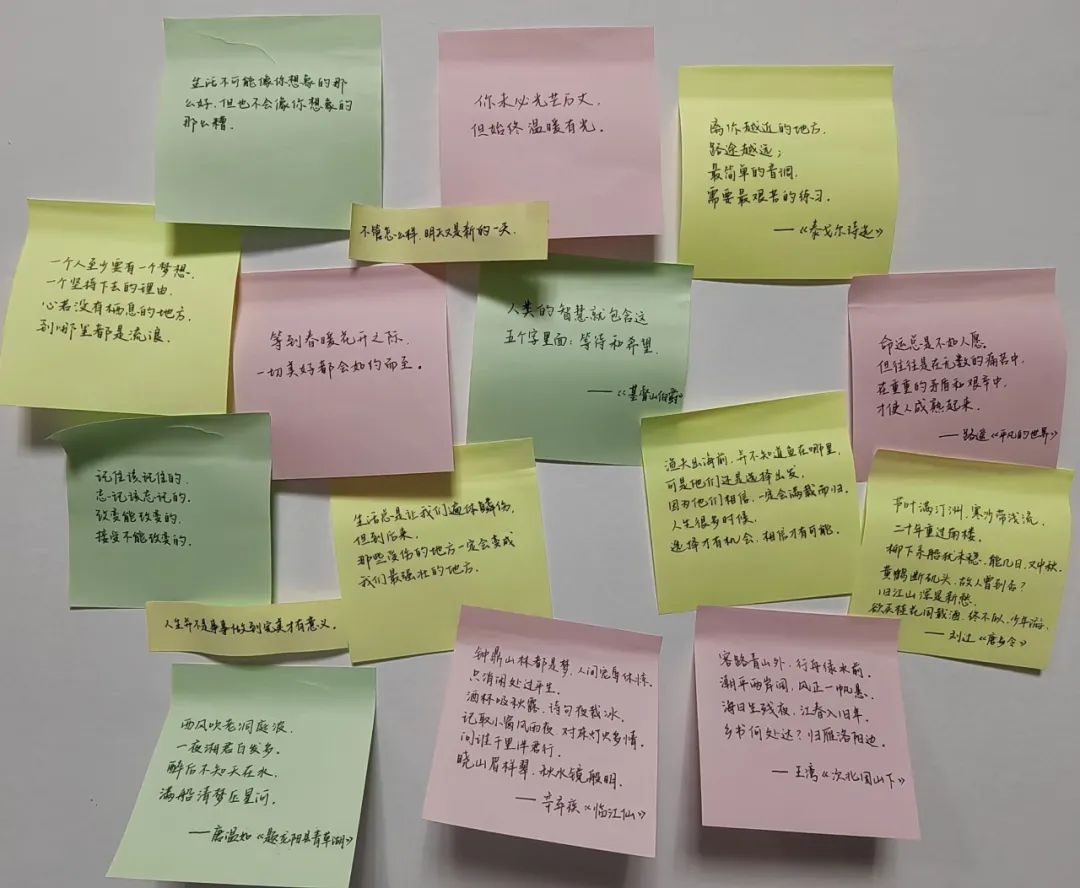 生活不可能像你想象的那
么好，但也不会像你想象的
那么糟。
你未必光芒万丈，
但始终温暖有光。
离你越近的地方，
路途越远；
最简单的音调，
需要最艰苦的练习。
——《泰戈尔诗选》
不管怎么样，明天又是新的一天。
一个人至少要有一个梦想，
一个坚持下去的理由，
心若没有栖息的地方，
到哪里都是流浪。
等到春暖花开之际，
一切美好都会如约而至。
人类的智慧就包含这
五个字里面：等待和希望。
——《基督山伯爵》
命运总是不如人愿。
但往往是在无数的痛苦中，
在重重的矛盾和艰辛中，
才使人成熟起来。
——路遥《平凡的世界》
记住该记住的，
忘记该忘记的，
改变能改变的，
接受不能改变的。
生活总是让我们遍体鳞伤，
但到后来，
那些受伤的地方一定会变成
我们最强壮的地方。
渔夫出海前，并不知道鱼在哪里，
可是他们还是选择出发，
因为他们相信，一定会满载而归。
人生很多时候，
选择才有机会，相信才有可能。
芦叶满汀洲，寒沙带浅流。
二十年重过南楼。
柳下系船犹未稳，能几日，又中秋。
黄鹤断矶头，故人曾到否？
旧江山浑是新愁。
欲买桂花同载酒，终不似，少年游。
——刘过《唐多令》
人生并不是事事做到完美才有意义。
西风吹老洞庭波，
一夜湘君白发多。
醉后不知天在水，
满船清梦压星河。
——唐温如《题龙阳县青草湖》
钟鼎山林都是梦，人间宠辱休惊。
只消闲处过平生。
酒杯吸秋露，诗句夜裁冰。
记取小窗风雨夜，对床灯火多情。
问谁千里伴君行。
晓山眉样翠，秋水镜般明。
——辛弃疾《临江仙》
客路青山外，行舟绿水前。
潮平两岸阔，风正一帆悬。
海日生残夜，江春入旧年。
乡书何处达？归雁洛阳边。
——王湾《次北固山下》